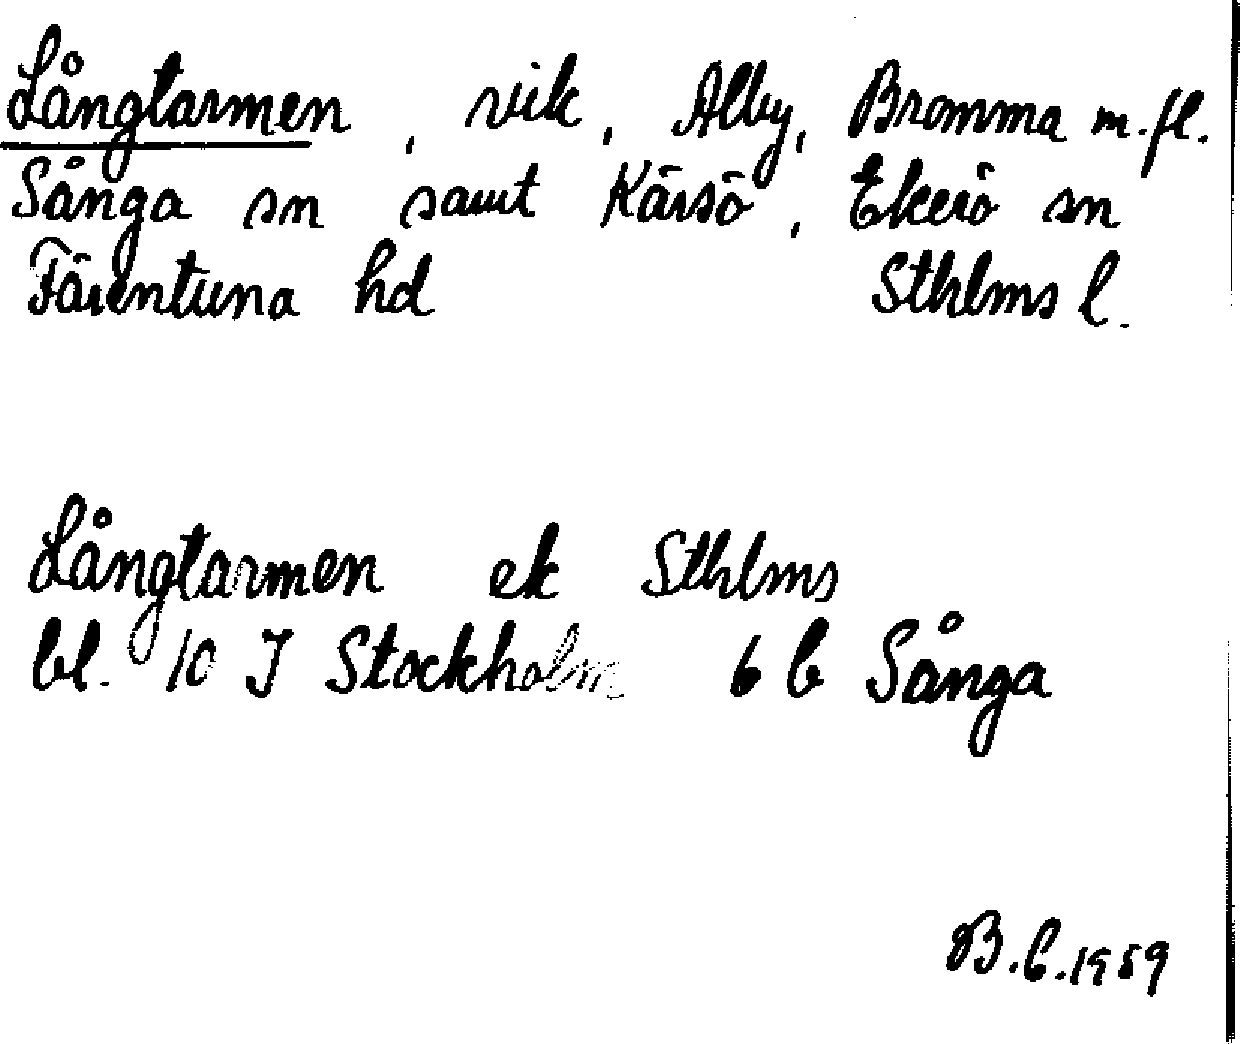 Långtarmen, vik, Alby, Bromma m.fl.
Sånga sn samt Kärsö, Ekerö sn
Färentuna hd Sthlms l.
Långtarmen ek Sthlms
bl. 10 I Stockholm 6 b Sånga
B.C.1959